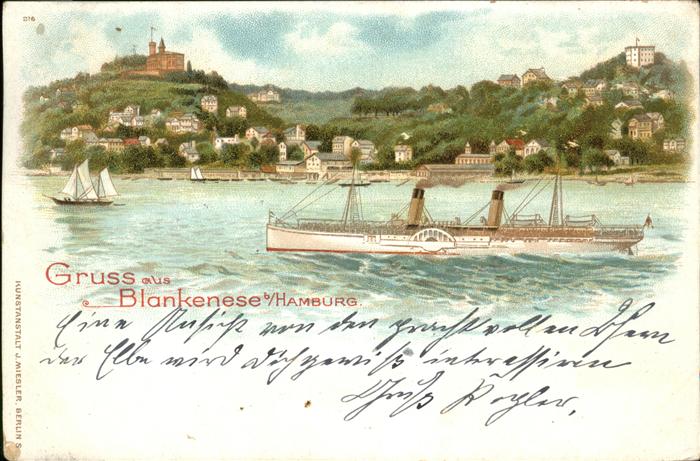 216
Gruss aus
Blankenese b/Hamburg.
Eine Ansicht von den prachtvollen Ufern
der Elbe wird Dich gewiß interessiren
Gruß
KUNSTANSTALT J. MIESLER, BERLIN S.